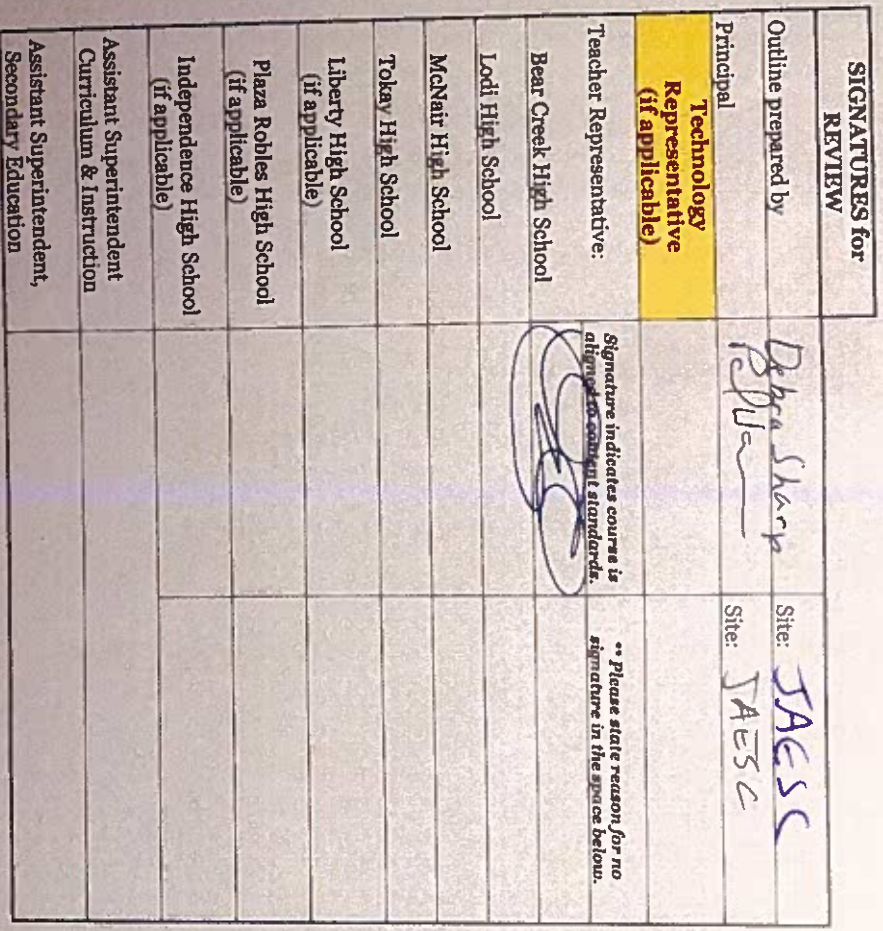 SIGNATURES for
REVIEW
Outline prepared by
Debra Sharp
Site: JAESC
Principal
Site: JAESC
Technology
Representative
(if applicable)
Teacher Representative:
Signature indicates course is
aligned to content standards.
** Please state reason for no
signature in the space below.
Bear Creek High School
Lodi High School
McNair High School
Tokay High School
Liberty High School
(if applicable)
Plaza Robles High School
(if applicable)
Independence High School
(if applicable)
Assistant Superintendent
Curriculum & Instruction
Assistant Superintendent,
Secondary Education